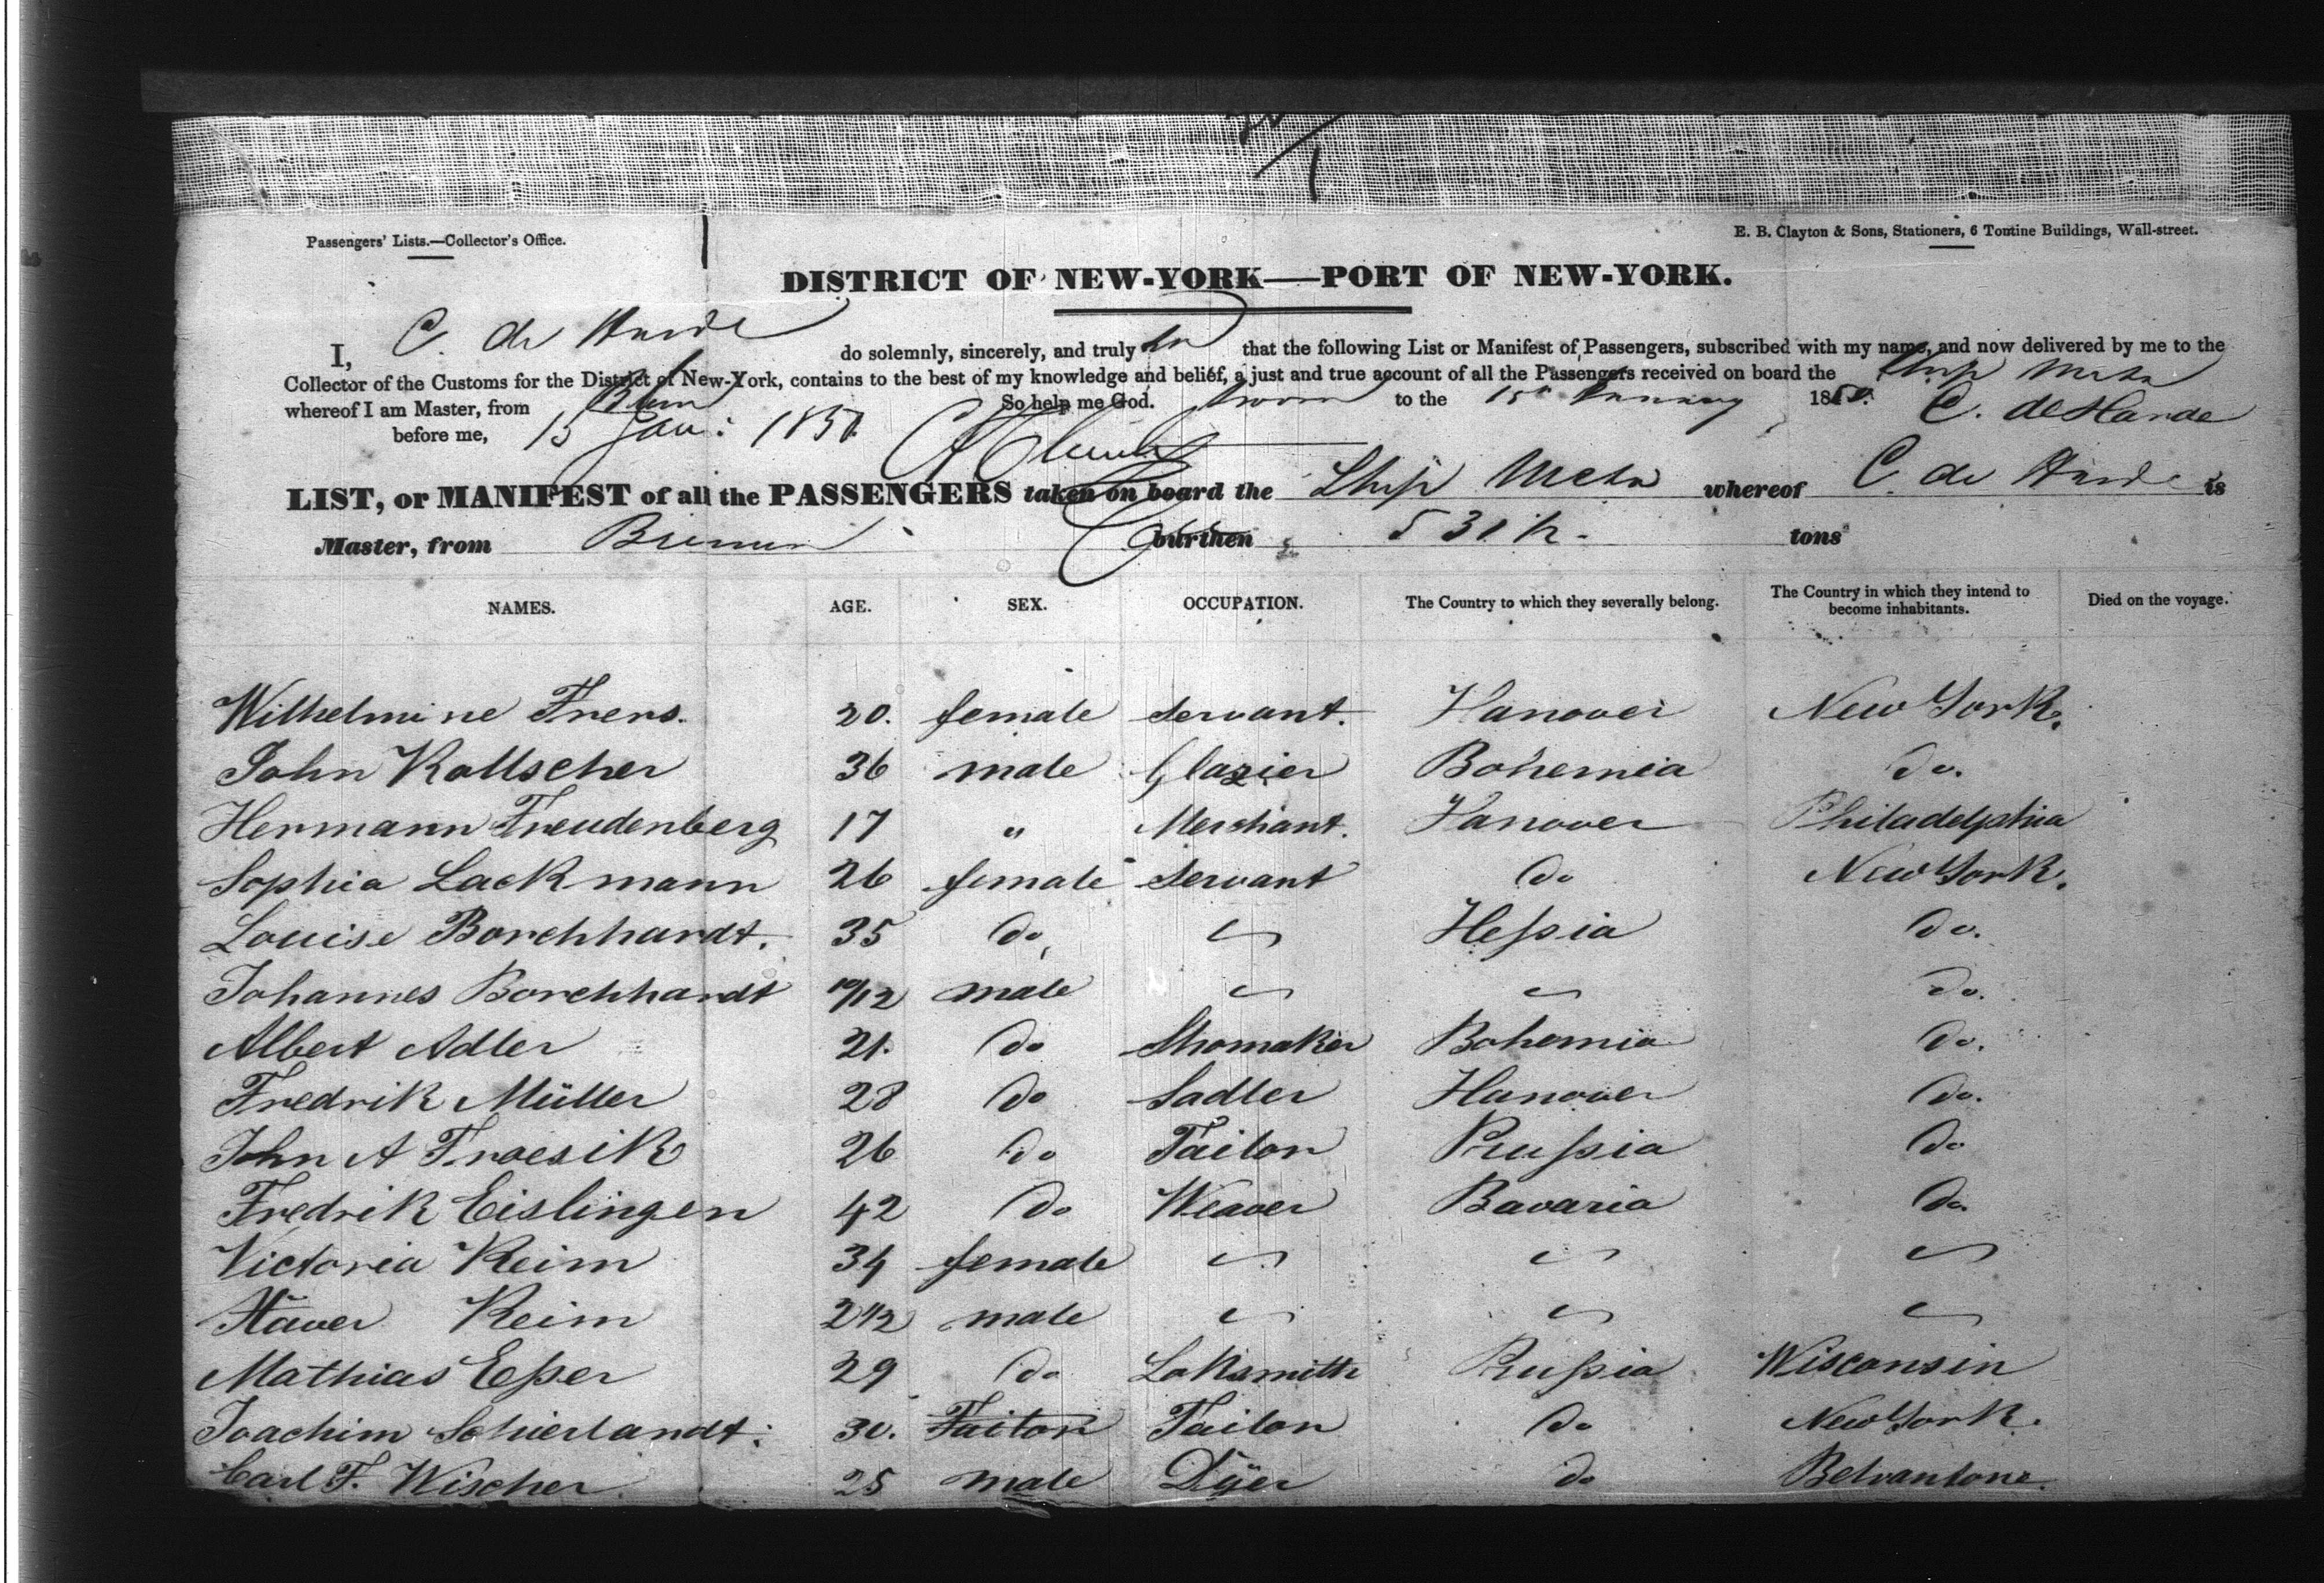 Passengers' Lists.—Collector's Office.
E. B. Clayton & Sons, Stationers, 6 Tontine Buildings, Wall-street.
DISTRICT OF NEW-YORK—PORT OF NEW-YORK.
I, C. de Harde do solemnly, sincerely, and truly that the following List or Manifest of Passengers, subscribed with my name, and now delivered by me to the
Collector of the Customs for the District of New-York, contains to the best of my knowledge and belief, a just and true account of all the Passengers received on board the Ship Meta
whereof I am Master, from So help me God. Sworn to the 15th January 1850. C. de Harde
before me, 15 Jan: 1850.
LIST, or MANIFEST of all the PASSENGERS taken on board the Ship Meta whereof C. de Harde is
Master, from Bremen burthen tons
NAMES. AGE. SEX. OCCUPATION. The Country to which they severally belong. The Country in which they intend to become inhabitants. Died on the voyage.
Wilhelmine Frers. 20. female servant. Hanover New York.
John Kollscher 36 male Glazier Bohemia do.
Hermann Freudenberg 17 " Merchant. Hanover Philadelphia
Sophia Lackmann 26 female servant do New York.
Louise Borchhardt. 35 do " Heſsia do.
Johannes Borchhardt 10/12 male " " do.
Albert Adler 21. do Shomaker Bohemia do.
Fredrik Müller 28 do Sadler Hanover do.
John A Froesik 26 do Tailor Pruſsia do
Fredrik Eislingen 42 do Weaver Bavaria do.
Victoria Keim 34 female " " "
Xaver Keim male " " "
Mathias Eſser 29 do Loksmith Pruſsia Wisconsin
Joachim Schierlandt: 30. Tailor Tailor do New York.
Carl F. Wischer 25 male Dÿer do